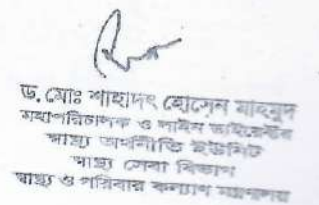 ড. মোঃ শাহাদৎ হোসেন মাহমুদ
মহাপরিচালক ও লাইন ডাইরেক্টর
স্বাস্থ্য অর্থনীতি ইউনিট
স্বাস্থ্য সেবা বিভাগ
স্বাস্থ্য ও পরিবার কল্যাণ মন্ত্রণালয়